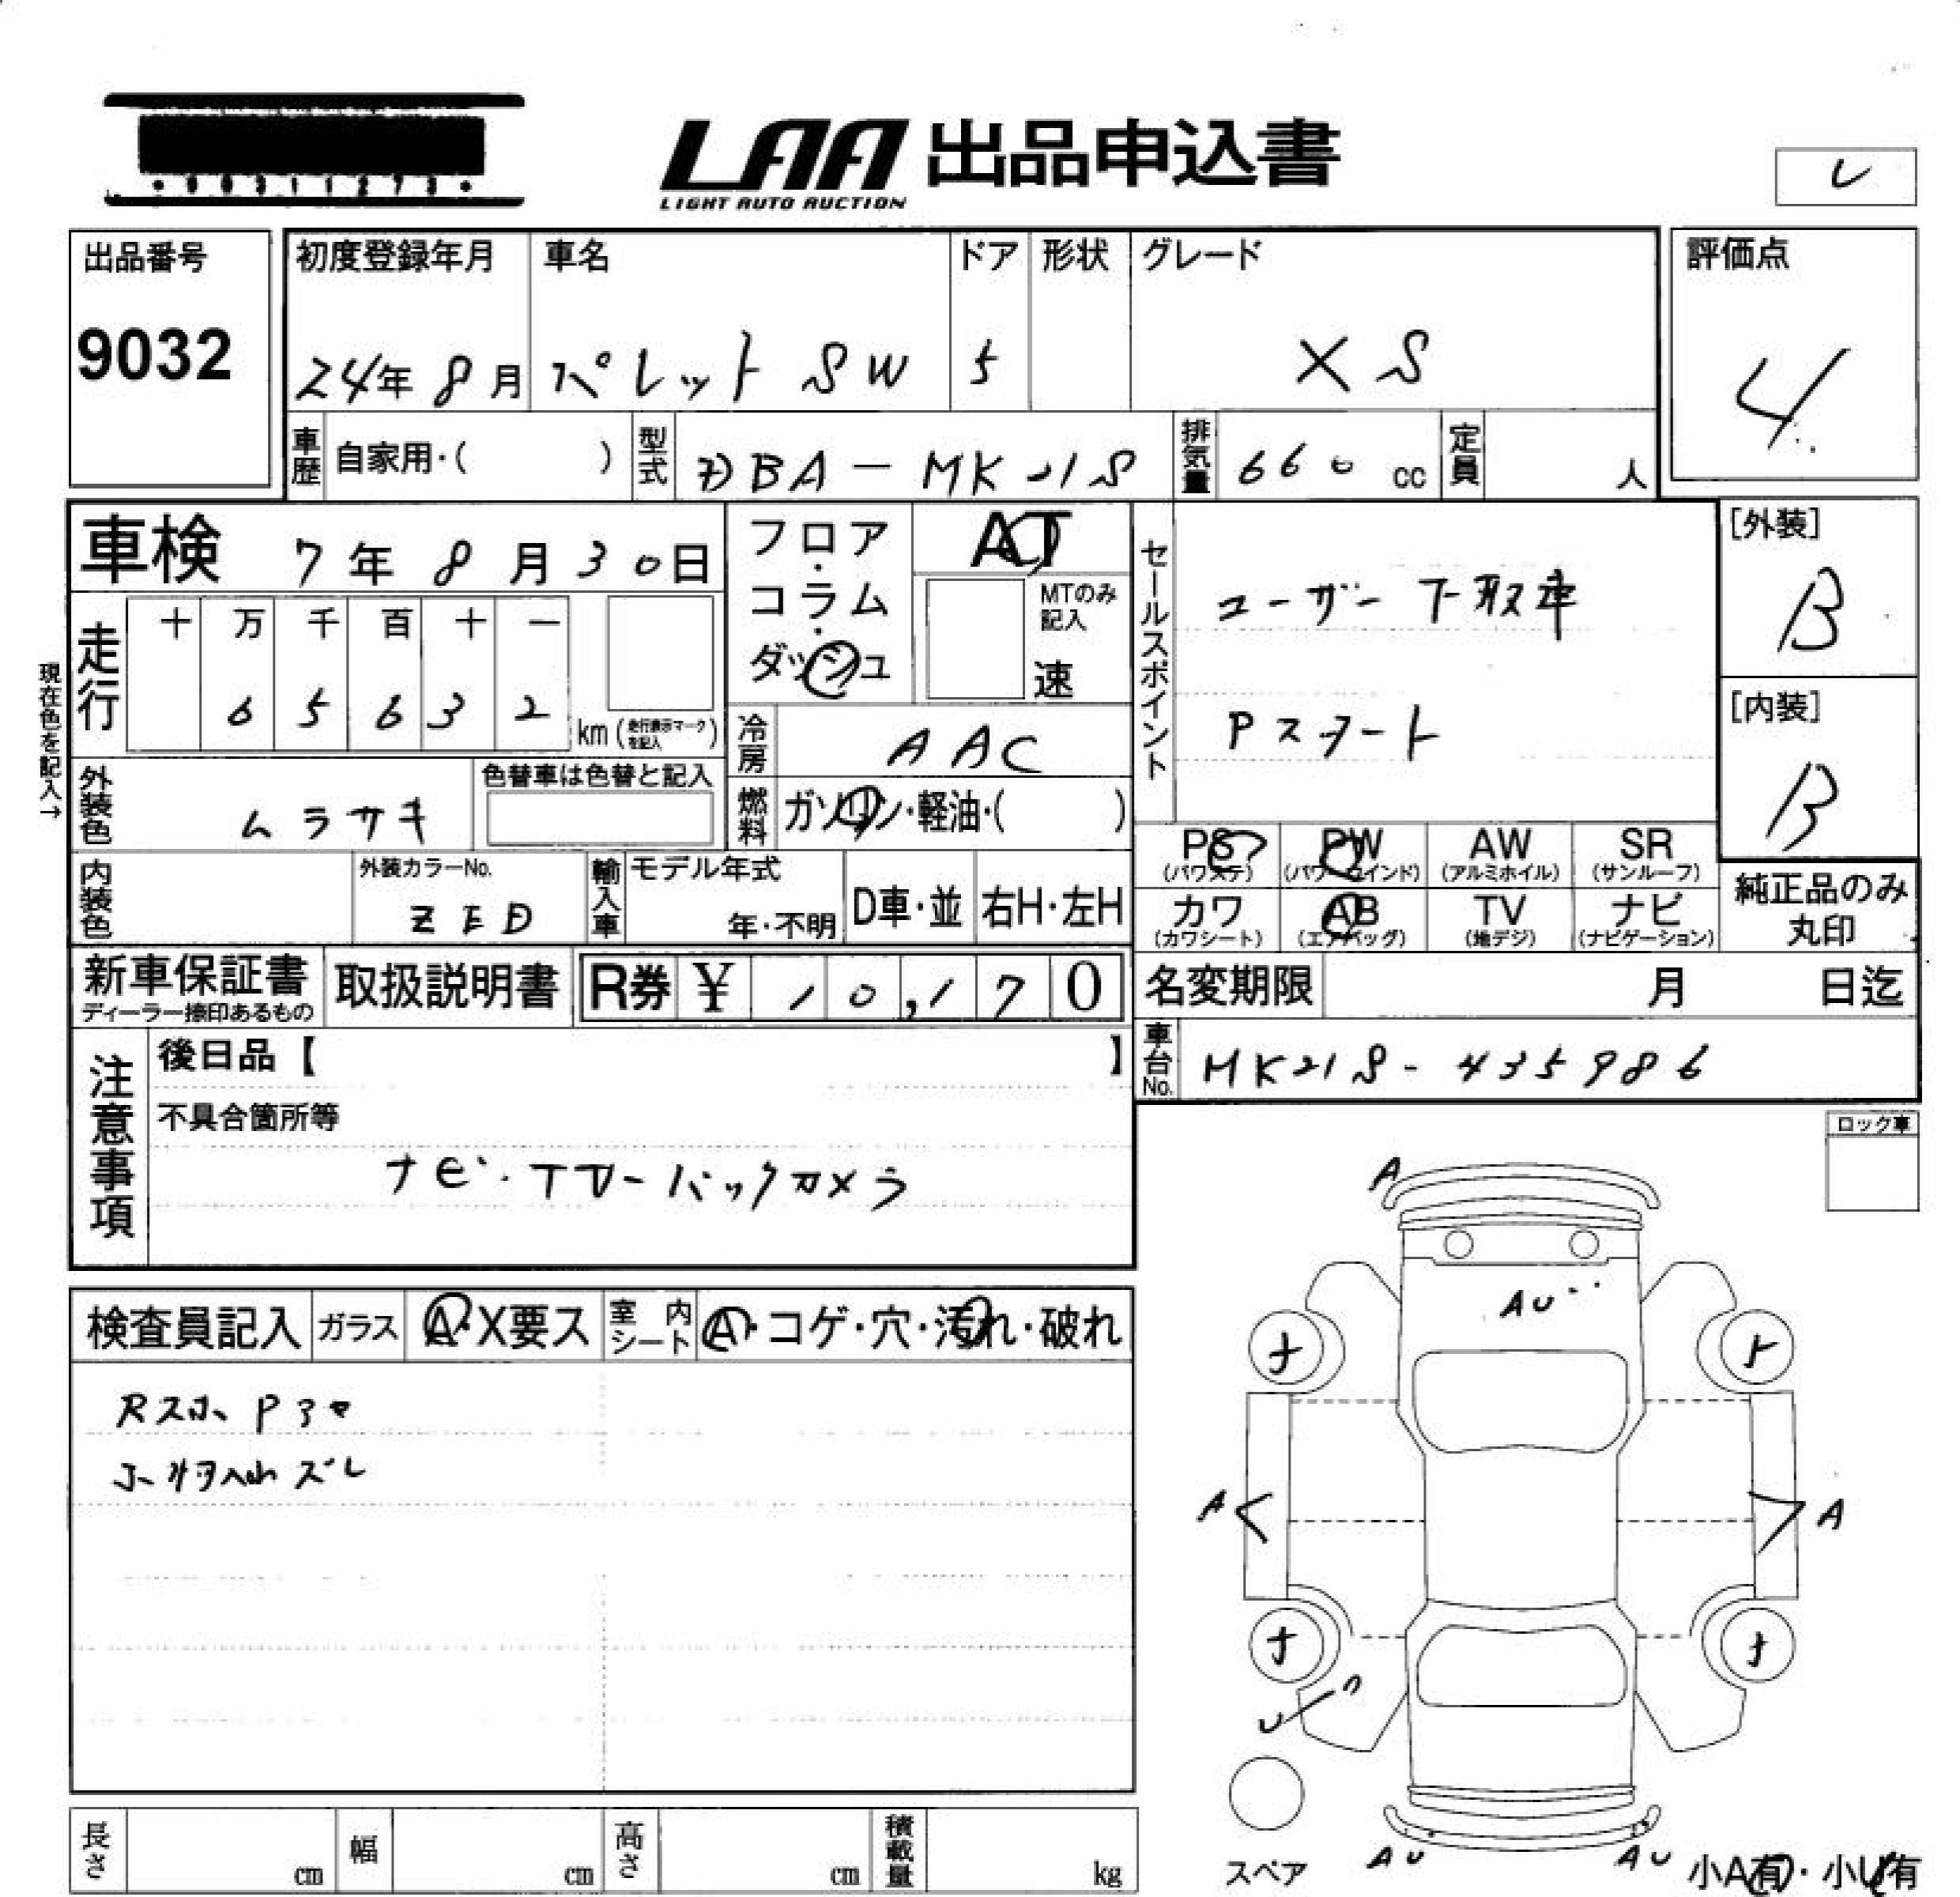 LAA 出品申込書
LIGHT AUTO AUCTION
レ
出品番号
9032
初度登録年月
24年 8月
車名
パレット SW
ドア
5
形状
グレード
XS
評価点
4
車歴 自家用・( )
型式 DBA-MK21S
排気量 660 cc
定員 人
車検 7年 8月 30日
走行 十 万 千 百 十 一
6 5 6 3 2 km (走行表示マークを記入)
現在色を記入→
外装色 ムラサキ
色替車は色替と記入
内装色
外装カラーNo.
ZED
フロア・コラム・ダッシュ
AT
MTのみ記入
速
冷房 AAC
燃料 ガソリン・軽油・( )
輸入車
モデル年式
年・不明
D車・並
右H・左H
セールスポイント
ユーザー下取車
Pスタート
[外装]
B
[内装]
B
PS (パワステ)
PW (パワーウインド)
AW (アルミホイル)
SR (サンルーフ)
カワ (カワシート)
AB (エアバッグ)
TV (地デジ)
ナビ (ナビゲーション)
純正品のみ丸印
新車保証書
ディーラー捺印あるもの
取扱説明書
R券 ¥ 10,170
名変期限 月 日迄
車台No. MK21S-435986
注意事項
後日品【 】
不具合箇所等
ナビ・TV・バックカメラ
ロック車
検査員記入
ガラス A・X要ス
室内シート A・コゲ・穴・汚れ・破れ
A
AU
ナ
ト
A
A
ナ
ナ
スペア
AU
AU
小A有・小U有
長さ cm
幅 cm
高さ cm
積載量 kg